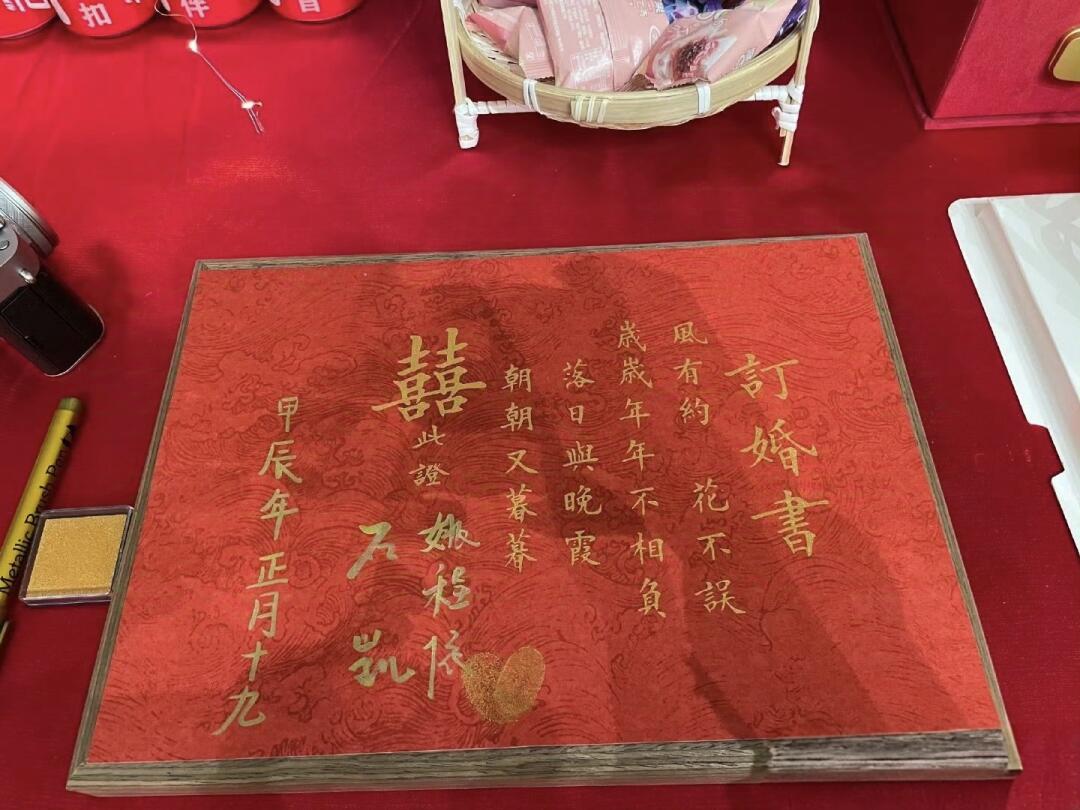 訂婚書
風有約 花不誤
歲歲年年不相負
落日與晚霞
朝朝又暮暮
囍
此證
石凱
甲辰年正月十九
扣
伴
Metallic Brush Pen